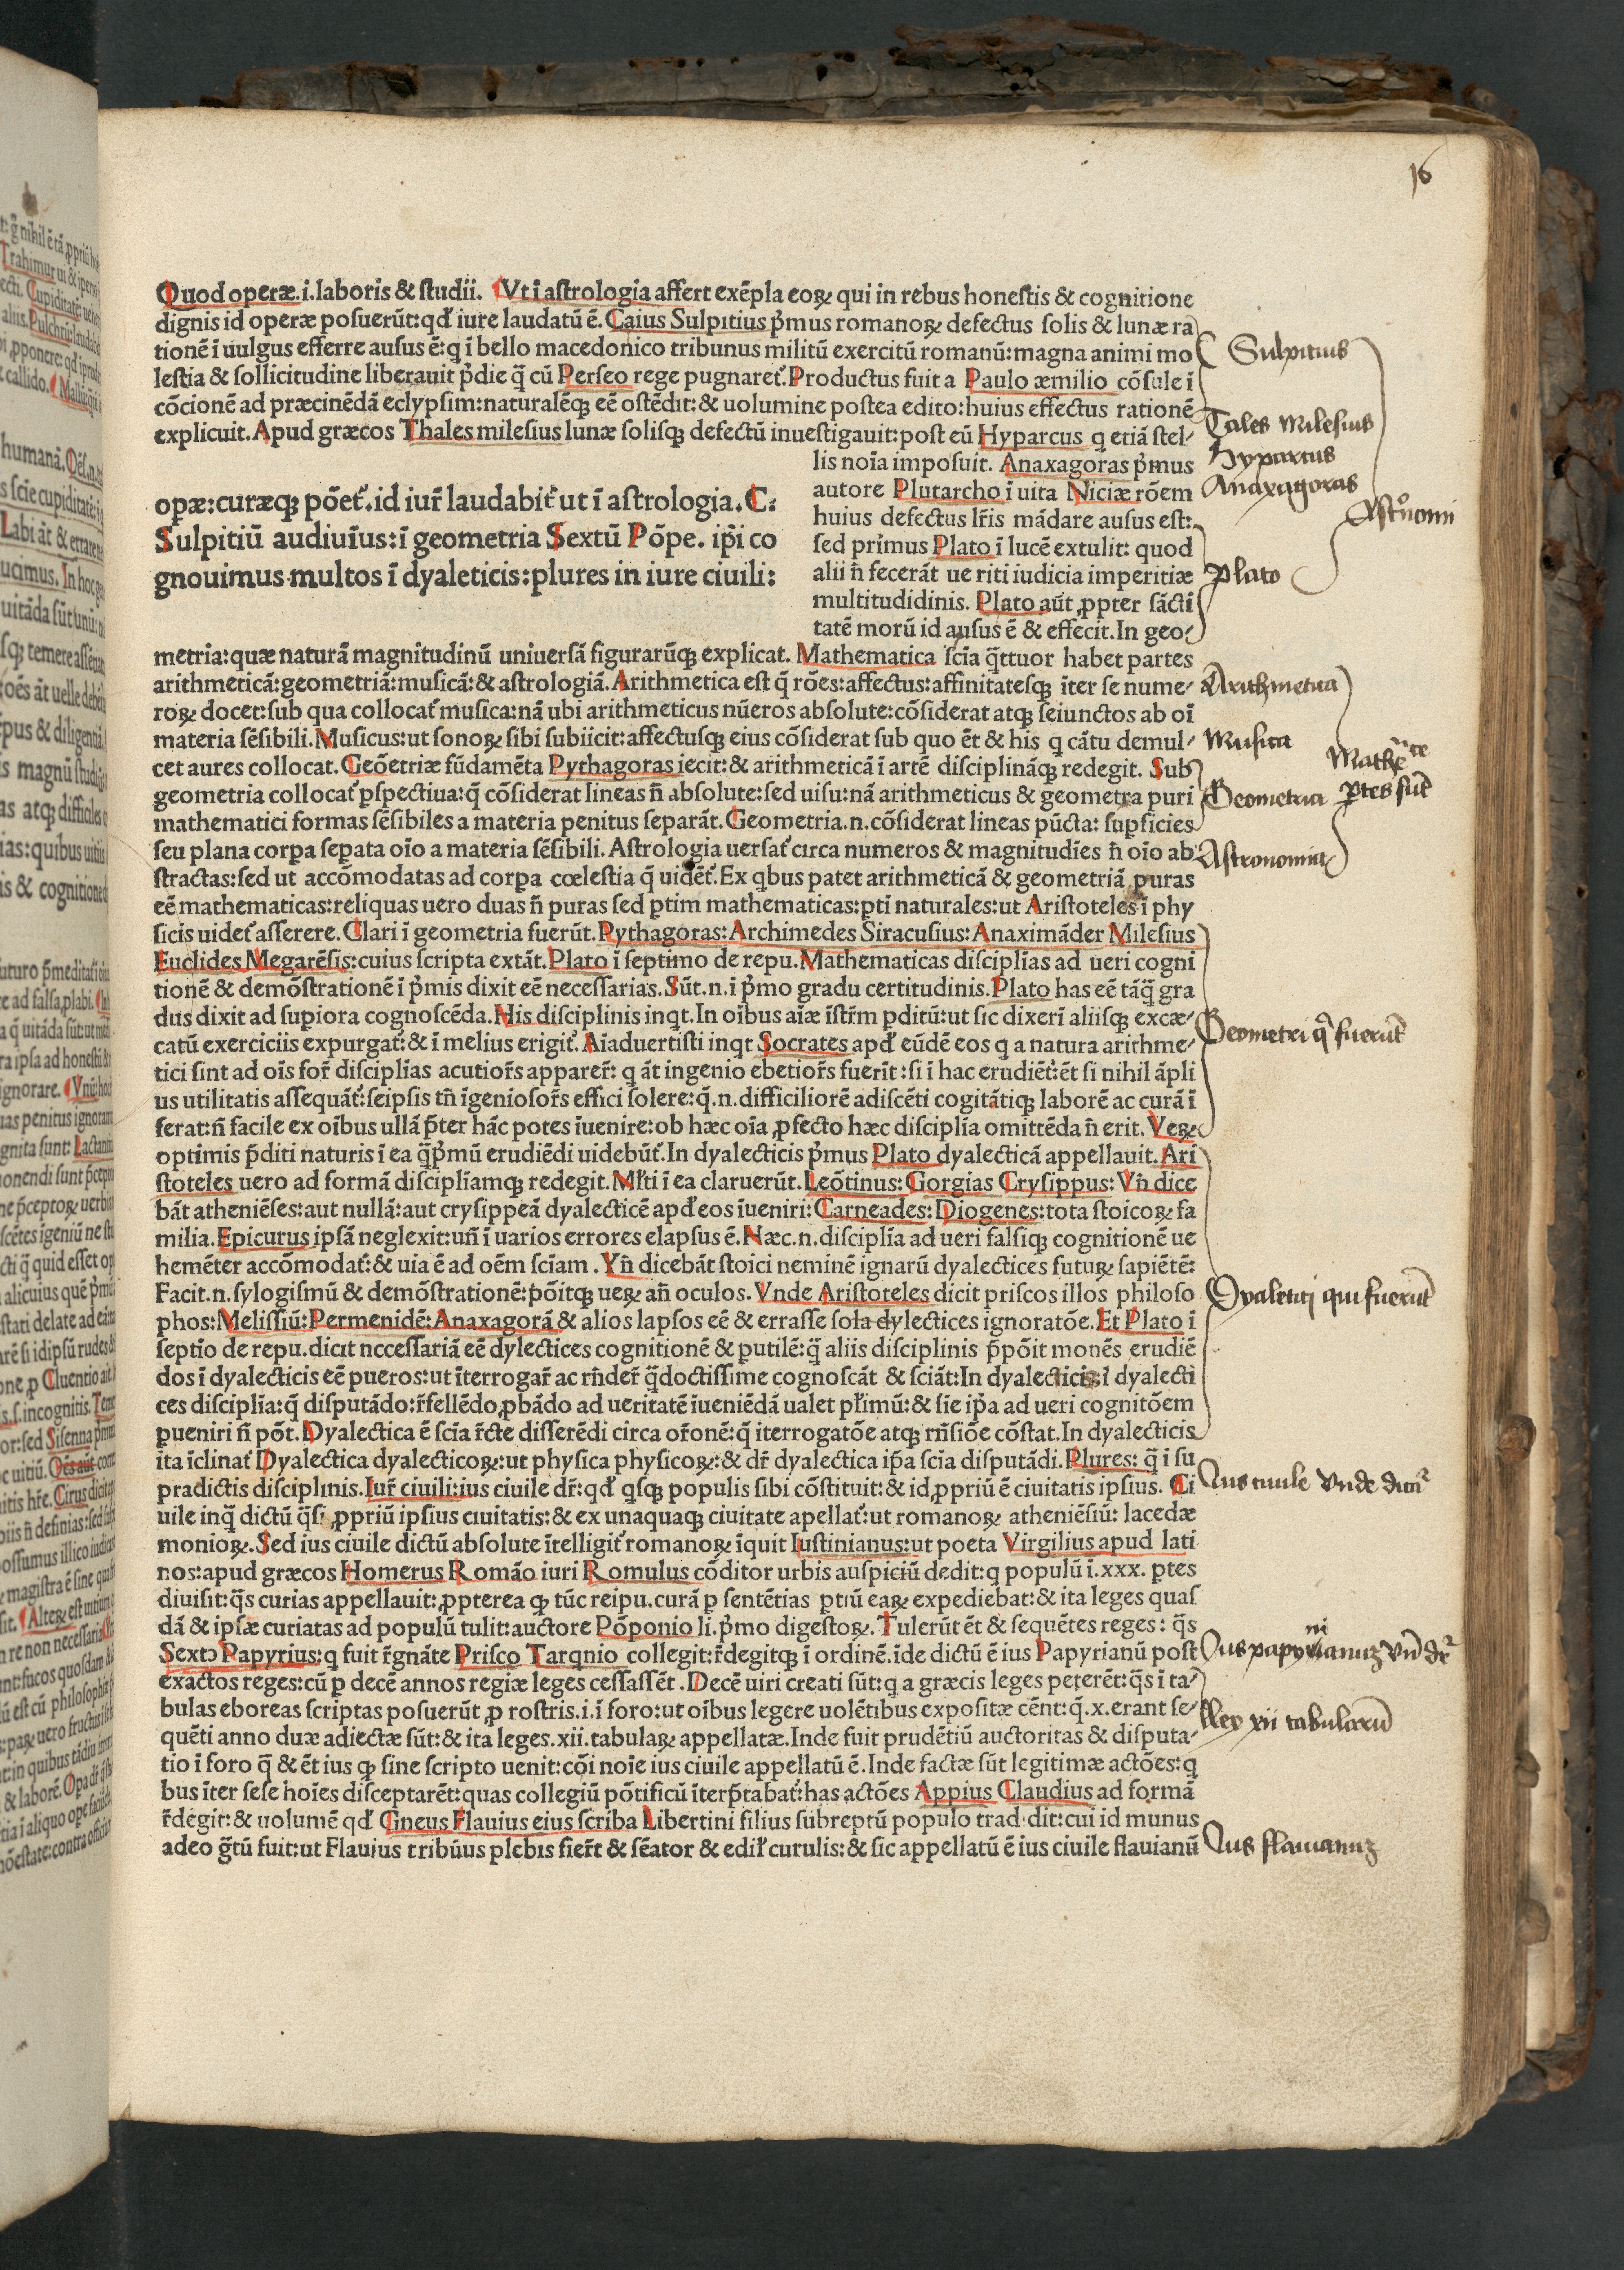 16
Quod operæ.i.laboris & studii. Vt ī astrologia affert exēpla eoꝝ qui in rebus honestis & cognitione
dignis id operæ posuerūt:qđ iure laudatū ē. Caius Sulpitius p̄mus romanoꝝ defectus solis & lunæ ra
tionē ī uulgus efferre ausus ē:q ī bello macedonico tribunus militū exercitū romanū:magna animi mo
lestia & sollicitudine liberauit p̄die q̄ cū Perseo rege pugnaret᷑.Productus fuit a Paulo æmilio cōsule ī
cōcionē ad præcinēdā eclypsim:naturalēqꝫ eē ostēdit:& uolumine postea edito:huius effectus rationē
explicuit. Apud græcos Thales milesius lunæ solisqꝫ defectū inuestigauit:post eū Hyparcus q etiā stel-
lis noīa imposuit. Anaxagoras p̄mus
autore Plutarcho ī uita Niciæ rōem
huius defectus lr̄is mādare ausus est:
sed primus Plato ī lucē extulit: quod
alii n̄ fecerāt ue riti iudicia imperitiæ
multitudidinis. Plato aūt ꝓpter sācti
tatē morū id ausus ē & effecit.In geo-
opæ:curæqꝫ pōet᷑.id iur̄ laudabit᷑ ut ī astrologia.C:
Sulpitiū audiuīus:ī geometria Sextū Pōpe. ip̄i co
gnouimus multos ī dyaleticis:plures in iure ciuili:
metria:quæ naturā magnitudinū uniuersā figurarūqꝫ explicat. Mathematica scīa q̄ttuor habet partes
arithmeticā:geometriā:musicā:& astrologiā.Arithmetica est q̄ rōes:affectus:affinitatesqꝫ īter se nume-
roꝝ docet:sub qua collocat᷑ musica:nā ubi arithmeticus nūeros absolute:cōsiderat atqꝫ seiunctos ab oī
materia sēsibili.Musicus:ut sonoꝝ sibi subiicit:affectusqꝫ eius cōsiderat sub quo ēt & his q cātu demul-
cet aures collocat. Geōetriæ fūdamēta Pythagoras iecit:& arithmeticā ī artē disciplināqꝫ redegit. Sub
geometria collocat᷑ ꝑspectiua:q̄ cōsiderat lineas n̄ absolute:sed uisu:nā arithmeticus & geometra puri
mathematici formas sēsibiles a materia penitus separāt.Geometria.n.cōsiderat lineas pūcta: suꝑficies
seu plana corꝑa seꝑata oīo a materia sēsibili. Astrologia uersat᷑ circa numeros & magnitudīes n̄ oīo ab
stractas:sed ut accōmodatas ad corꝑa cœlestia q̄ uidēt᷑.Ex qbus patet arithmeticā & geometriā puras
eē mathematicas:reliquas uero duas n̄ puras sed ꝑtim mathematicas:ꝑti naturales:ut Aristoteles ī phy
sicis uidet᷑ asserere. Clari ī geometria fuerūt.Pythagoras:Archimedes Siracusius:Anaximāder Milesius
Euclides Megarēsis:cuius scripta extāt.Plato ī septimo de repu.Mathematicas disciplīas ad ueri cogni
tionē & demōstrationē ī p̄mis dixit eē necessarias.Sūt.n.ī p̄mo gradu certitudinis.Plato has eē tāq̄ gra
dus dixit ad suꝑiora cognoscēda.Nis disciplinis inqt.In oībus aīæ īstr̄m ꝑditū:ut sic dixerī aliisqꝫ excæ-
catū exerciciis expurgat᷑:& ī melius erigit᷑. Aīaduertisti inqt Socrates apđ eūdē eos q a natura arithme-
tici sint ad oīs for̄ disciplīas acutior̄s apparer̄: q āt ingenio ebetior̄s fuerīt:si ī hac erudiēt᷑:ēt si nihil āpli
us utilitatis assequāt᷑:seipsis tn̄ īgeniosor̄s effici solere:q̄.n.difficiliorē adiscēti cogitātiqꝫ laborē ac curā ī
ferat:n̄ facile ex oībus ullā p̄ter hāc potes īuenire:ob hæc oīa ꝓfecto hæc disciplīa omittēda n̄ erit. Veꝝ
optimis p̄diti naturis ī ea q̄p̄mū erudiēdi uidebūt᷑.In dyalecticis p̄mus Plato dyalecticā appellauit. Ari
stoteles uero ad formā disciplīamqꝫ redegit.Mł̄ti ī ea claruerūt.Leōtinus:Gorgias Crysippus:Vn̄ dice
bāt atheniēses:aut nullā:aut crysippeā dyalecticē apđ eos īueniri:Carneades:Diogenes:tota stoicoꝝ fa
milia.Epicurus ipsā neglexit:un̄ ī uarios errores elapsus ē.Næc.n.disciplīa ad ueri falsiqꝫ cognitionē ue
hemēter accōmodat᷑:& uia ē ad oēm scīam .Vn̄ dicebāt stoici neminē ignarū dyalectices futuꝝ sapiētē:
Facit.n.sylogismū & demōstrationē:p̄ōitqꝫ ueꝝ an̄ oculos. Vnde Aristoteles dicit priscos illos philoso
phos:Melissiū:Permenidē:Anaxagorā & alios lapsos eē & errasse sola dylectices ignoratōe.Et Plato ī
septīo de repu.dicit nccessariā eē dylectices cognitionē & ꝑutilē:q̄ aliis disciplinis p̄pōit monēs erudiē
dos ī dyalecticis eē pueros:ut īterrogar̄ ac rn̄der̄ q̄doctissime cognoscāt & sciāt:In dyalecticis:ī dyalecti
ces disciplīa:q̄ disputādo:r̄fellēdo,ꝓbādo ad ueritatē īueniēdā ualet pł̄imū:& sīe ip̄a ad ueri cognitōem
ꝑueniri n̄ pōt.Dyalectica ē scīa r̄cte disserēdi circa or̄onē:q̄ iterrogatōe atqꝫ rn̄siōe cōstat.In dyalecticis
ita īclinat᷑ Dyalectica dyalecticoꝝ:ut physica physicoꝝ:& dr̄ dyalectica ip̄a scīa disputādi.Plures: q̄ ī su
pradictis disciplinis.Iur̄ ciuili:ius ciuile dr̄:qđ qsqꝫ populis sibi cōstituit:& id ꝓpriū ē ciuitatis ipsius. Ci
uile inq̄ dictū q̄si ꝓpriū ipsius ciuitatis:& ex unaquaqꝫ ciuitate apellat᷑:ut romanoꝝ atheniēsiū: lacedæ
monioꝝ.Sed ius ciuile dictū absolute ītelligit᷑ romanoꝝ īquit Iustinianus:ut poeta Virgilius apud lati
nos:apud græcos Homerus Romāo iuri Romulus cōditor urbis auspiciū dedit:q populū ī.xxx. ꝑtes
diuisit:q̄s curias appellauit:ꝓpterea ꝙ tūc reipu.curā ꝑ sentētias ꝑtiū eaꝝ expediebat:& ita leges quas
dā & ipsæ curiatas ad populū tulit:auctore Pōponio li.p̄mo digestoꝝ. Tulerūt ēt & sequētes reges: q̄s
Sexto Papyrius:q fuit r̄gnāte Prisco Tarqnio collegit:r̄degitqꝫ ī ordinē.īde dictū ē ius Papyrianū post
exactos reges:cū ꝑ decē annos regiæ leges cessassēt .Decē uiri creati sūt:q a græcis leges peterēt:q̄s ī ta-
bulas eboreas scriptas posuerūt ꝓ rostris.i.ī foro:ut oībus legere uolētibus expositæ cēnt:q̄.x.erant se-
quēti anno duæ adiectæ sūt:& ita leges.xii.tabulaꝝ appellatæ.Inde fuit prudētiū auctoritas & disputa-
tio ī foro q̄ & ēt ius ꝙ sine scripto uenit:cōi noīe ius ciuile appellatū ē.Inde factæ sūt legitimæ actōes:q
bus īter sese hoīes disceptarēt:quas collegiū pōtificū īterp̄tabat᷑:has actōes Appius Claudius ad formā
r̄degit:& uolumē qđ Gneus Flauius eius scriba Libertini filius subreptū populo tradidit:cui id munus
adeo ḡtū fuit:ut Flauius tribūus plebis fier̄t & sēator & edił curulis:& sic appellatū ē ius ciuile flauianū
Sulpitius
Tales Milesius
Hyparcus
Anaxagoras
Astro̅nomi
Plato
Arithmetica
Musica
Geometria
ꝑtes sūt
Astronomia
Geometri q̄ fuerūt
Dyaletici qui fuerūt
Ius ciuile vnde dicit᷑
Ius papyrianuꝫ vn̄ dr̄
Lex xii tabularū
Ius flauianuꝫ